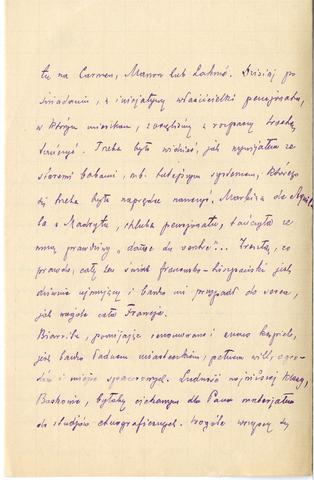 tu na Carmen, Manon lub Lakmé. Dzisiaj po
śniadaniu, z inicjatywy właścicielki pensjonatu,
w którym mieszkam, zaczęliśmy z rozpaczy trochę
tańczyć. Trzeba było widzieć, jak wywijałem ze
staremi babami, nb. tutejszym systemem, którego
się trzeba było naprzód nauczyć. Markiza de
la z Madrytu, chluba pensjonatu, tańczyła ze
mną prawdziwy „danse du ventre"... Zresztą, co
prawda, cały ten świat francusko-hiszpański jest
dziwnie ujmujący i bardzo mi przypadł do serca,
jak wogóle cała Francja.
Biarritz, pomijając renomowane i znane kąpiele,
jest bardzo ładnem miasteczkiem, pełnem will, ogro-
dów i miejsc spacerowych. Ludność najniższej klasy,
Baskowie, byłaby ciekawym dla Pana materjałem
do studjów etnograficznych. Wogóle wszyscy tu